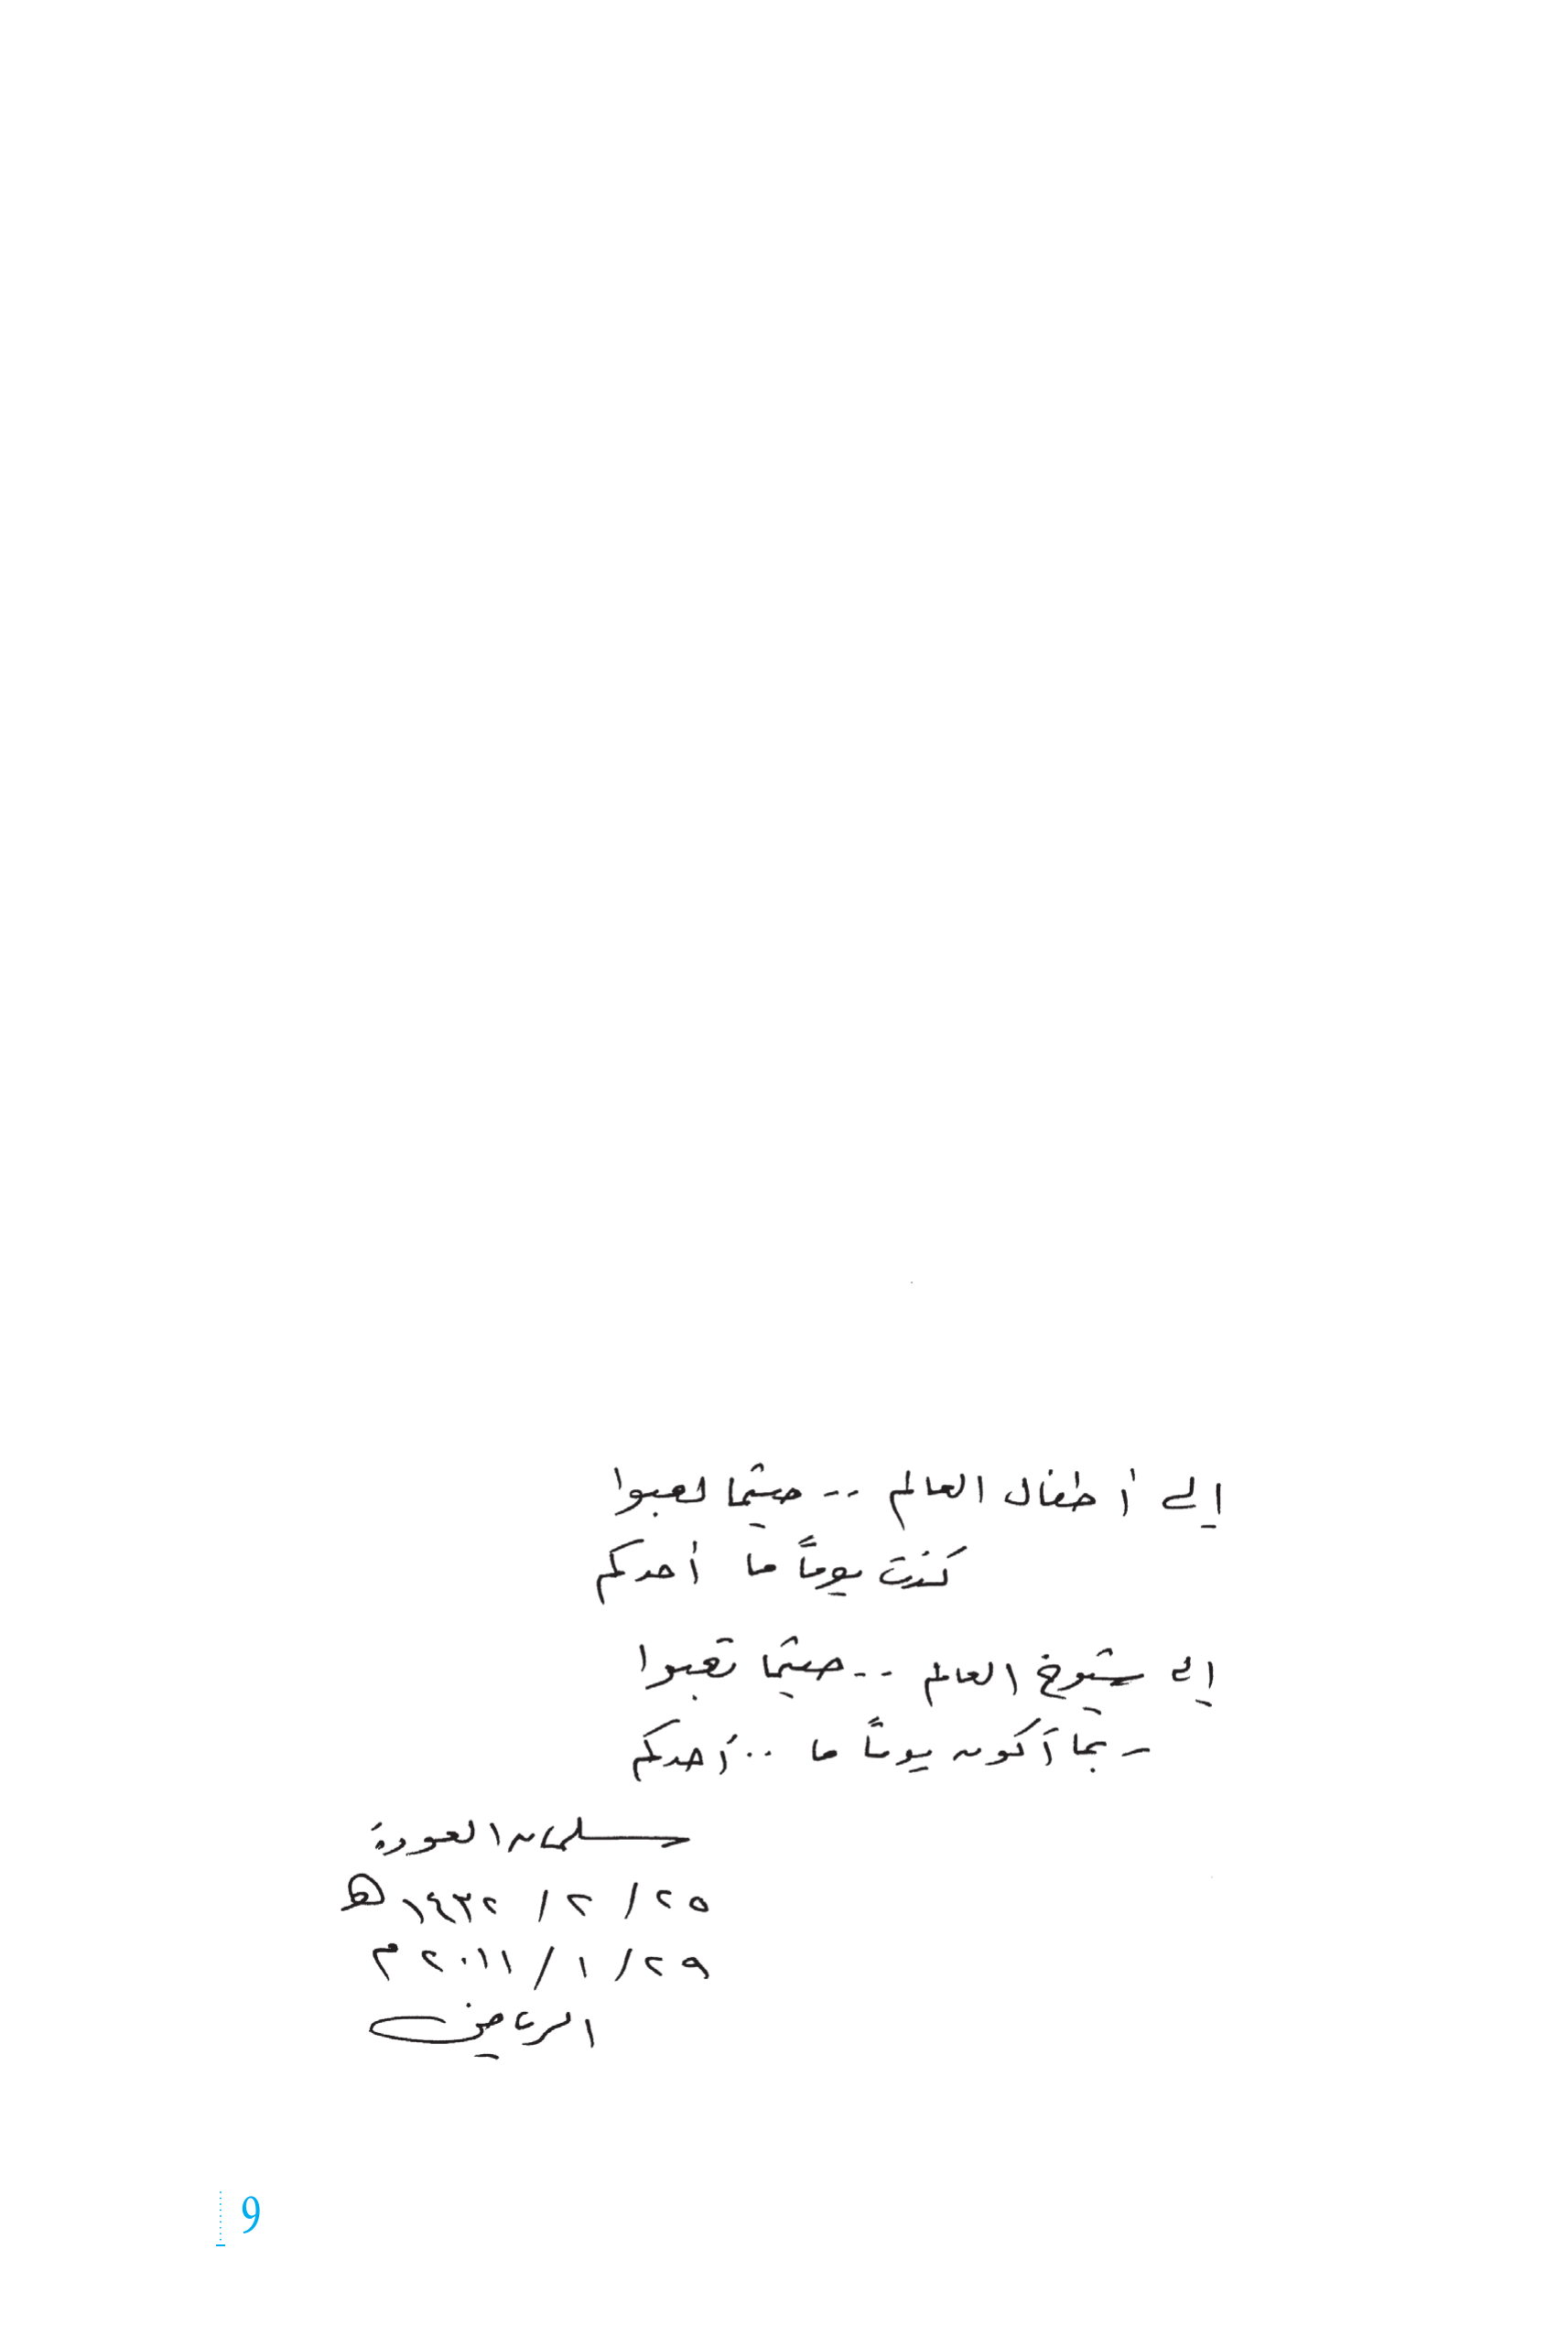 إلى أطفال العالم .. حيثما لعبوا
كنت يوماً ما أحدكم
إلى شيوخ العالم .. حيثما تعبوا
ربما أكون يوماً ما .. أحدكم
سلمان العودة
٢٥ / ٢ / ١٤٣٢ هـ
٢٩ / ١ / ٢٠١١ م
الرياض
9